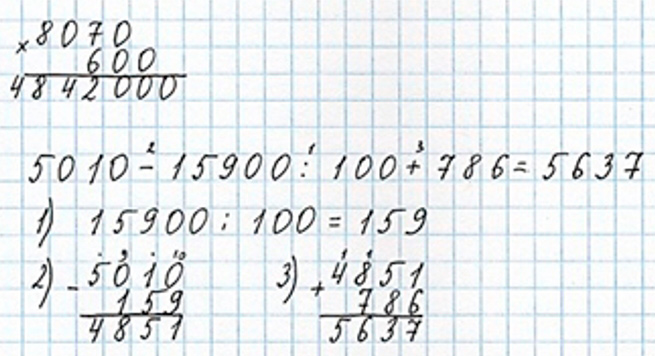 × 8070
600
4842000
5010 - 15900 : 100 + 786 = 5637
1) 15900 : 100 = 159
2) - 5010 3) + 4851
159 786
4851 5637